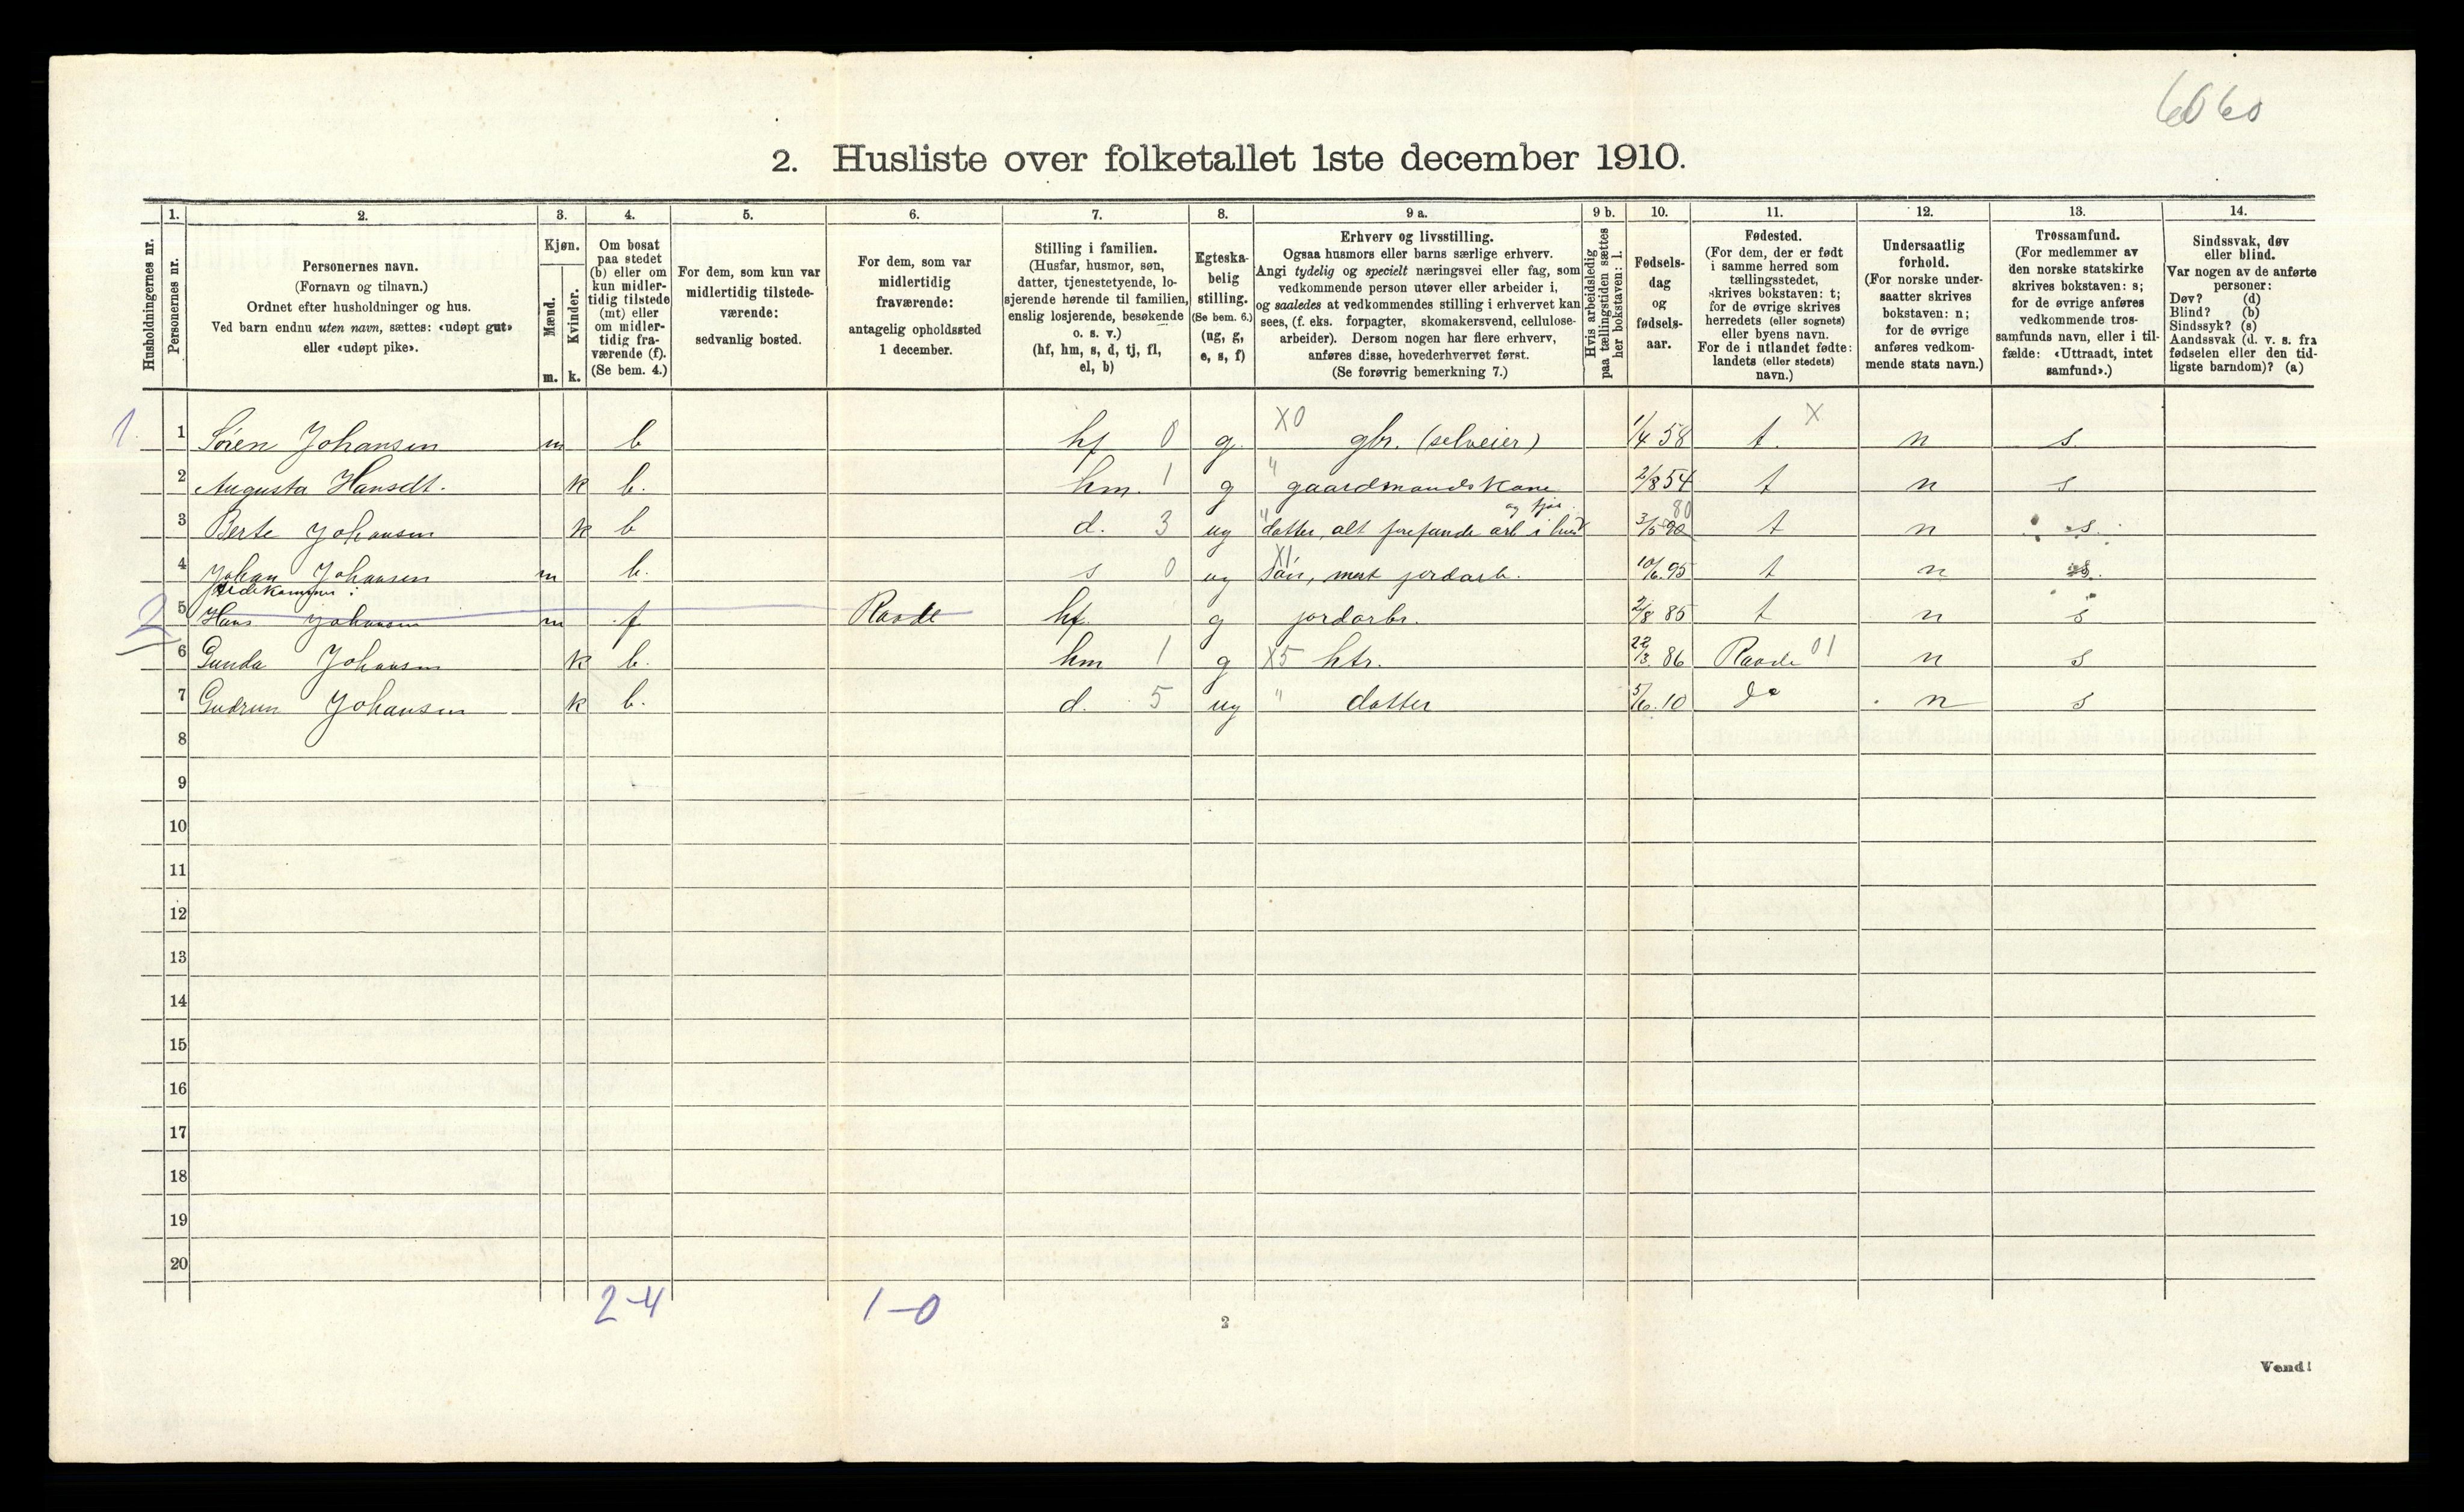 6060
2. Husliste over folketallet 1ste december 1910.
1. 2. 3. 4. 5. 6. 7. 8. 9 a. 9 b. 10. 11. 12. 13. 14.
Husholdningernes nr.
Personernes nr.
Personernes navn.
(Fornavn og tilnavn.)
Ordnet efter husholdninger og hus.
Ved barn endnu uten navn, sættes: «udøpt gut»
eller «udøpt pike».
Kjøn.
Mænd.
Kvinder.
m. k.
Om bosat
paa stedet
(b) eller om
kun midler-
tidig tilstede
(mt) eller
om midler-
tidig fra-
værende (f).
(Se bem. 4.)
For dem, som kun var
midlertidig tilstede-
værende:
sedvanlig bosted.
For dem, som var
midlertidig
fraværende:
antagelig opholdssted
1 december.
Stilling i familien.
(Husfar, husmor, søn,
datter, tjenestetyende, lo-
sjerende hørende til familien,
enslig losjerende, besøkende
o. s. v.)
(hf, hm, s, d, tj, fl,
el, b)
Egteska-
belig
stilling.
(Se bem. 6.)
(ug, g,
e, s, f)
Erhverv og livsstilling.
Ogsaa husmors eller barns særlige erhverv.
Angi tydelig og specielt næringsvei eller fag, som
vedkommende person utøver eller arbeider i,
og saaledes at vedkommendes stilling i erhvervet kan
sees, (f. eks. forpagter, skomakersvend, cellulose-
arbeider). Dersom nogen har flere erhverv,
anføres disse, hovederhvervet først.
(Se forøvrig bemerkning 7.)
Hvis arbeidsledig
paa tællingstiden sættes
her bokstaven: l.
Fødsels-
dag
og
fødsels-
aar.
Fødested.
(For dem, der er født
i samme herred som
tællingsstedet,
skrives bokstaven: t;
for de øvrige skrives
herredets (eller sognets)
eller byens navn.
For de i utlandet fødte:
landets (eller stedets)
navn.)
Undersaatlig
forhold.
(For norske under-
saatter skrives
bokstaven: n;
for de øvrige
anføres vedkom-
mende stats navn.)
Trossamfund.
(For medlemmer av
den norske statskirke
skrives bokstaven: s;
for de øvrige anføres
vedkommende tros-
samfunds navn, eller i til-
fælde: «Uttraadt, intet
samfund».)
Sindssvak, døv
eller blind.
Var nogen av de anførte
personer:
Døv? (d)
Blind? (b)
Sindssyk? (s)
Aandssvak (d. v. s. fra
fødselen eller den tid-
ligste barndom)? (a)
1. 1 Søren Johansen m b hf 0 g. X0 gbr. (selveier) 1/4 58 t. X n s.
2 Augusta Hansdt. k b. hm. 1 g " gaardmandskone 2/8 54 t n s
og fjøs. 80
3 Berte Johansen k b d. 3 ug " datter, alt forefaldende arb i hus 3/5 90 t n s.
4 Johan Johansen m b. s 0 ug X1 søn, mest jordarb. 10/6. 95 t n s.
2 5 Hans Johansen m f Raade hf. g jordarbr. 2/8 85 t n s
6 Gunda Johansen k b. hm 1 g X5 htr. 22/3. 86 Raade 01 n s
7 Gudrun Johansen k b. d. 5 ug " datter 5/6. 10 do n s
8
9
10
11
12
13
14
15
16
17
18
19
20
2-4 1-0
2
Vend!